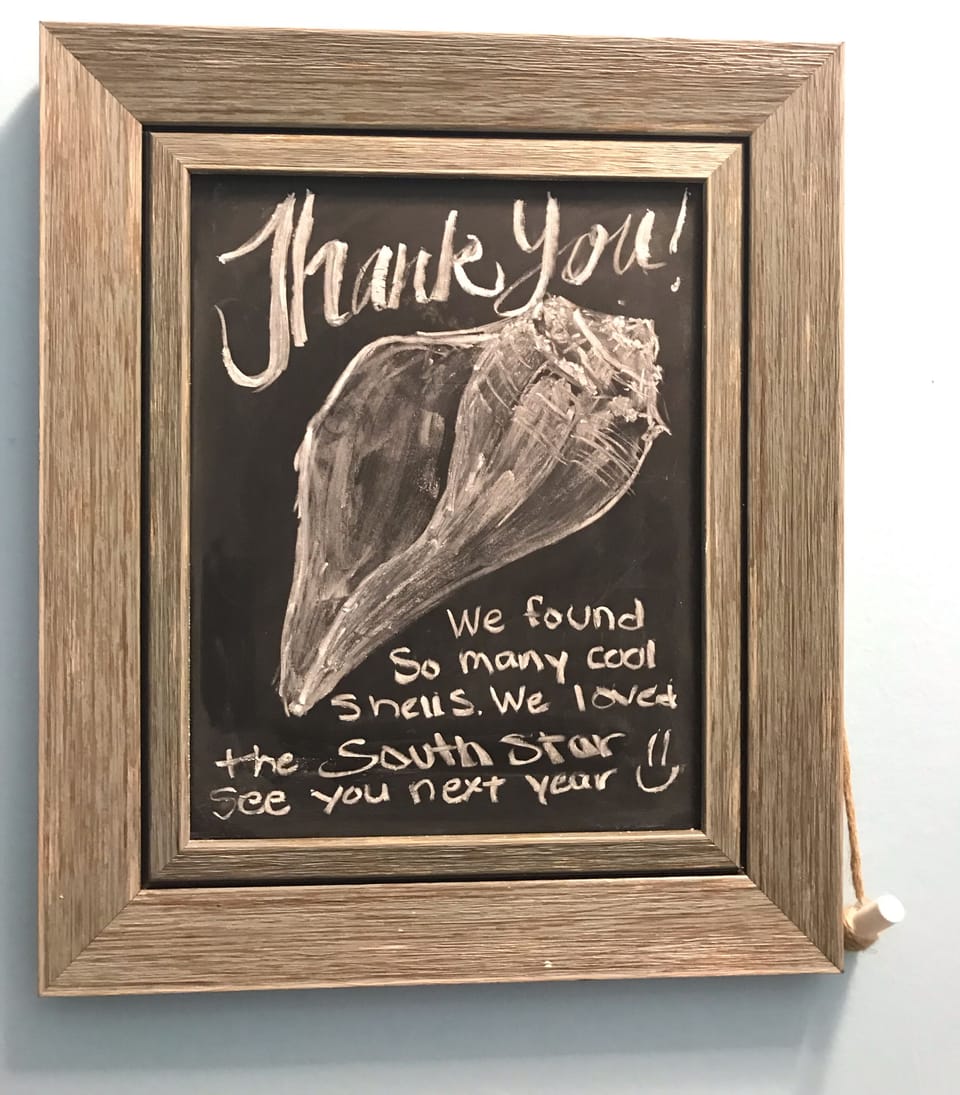 Thank You!
We found
So many cool
Shells. We loved
the South Star
See you next year